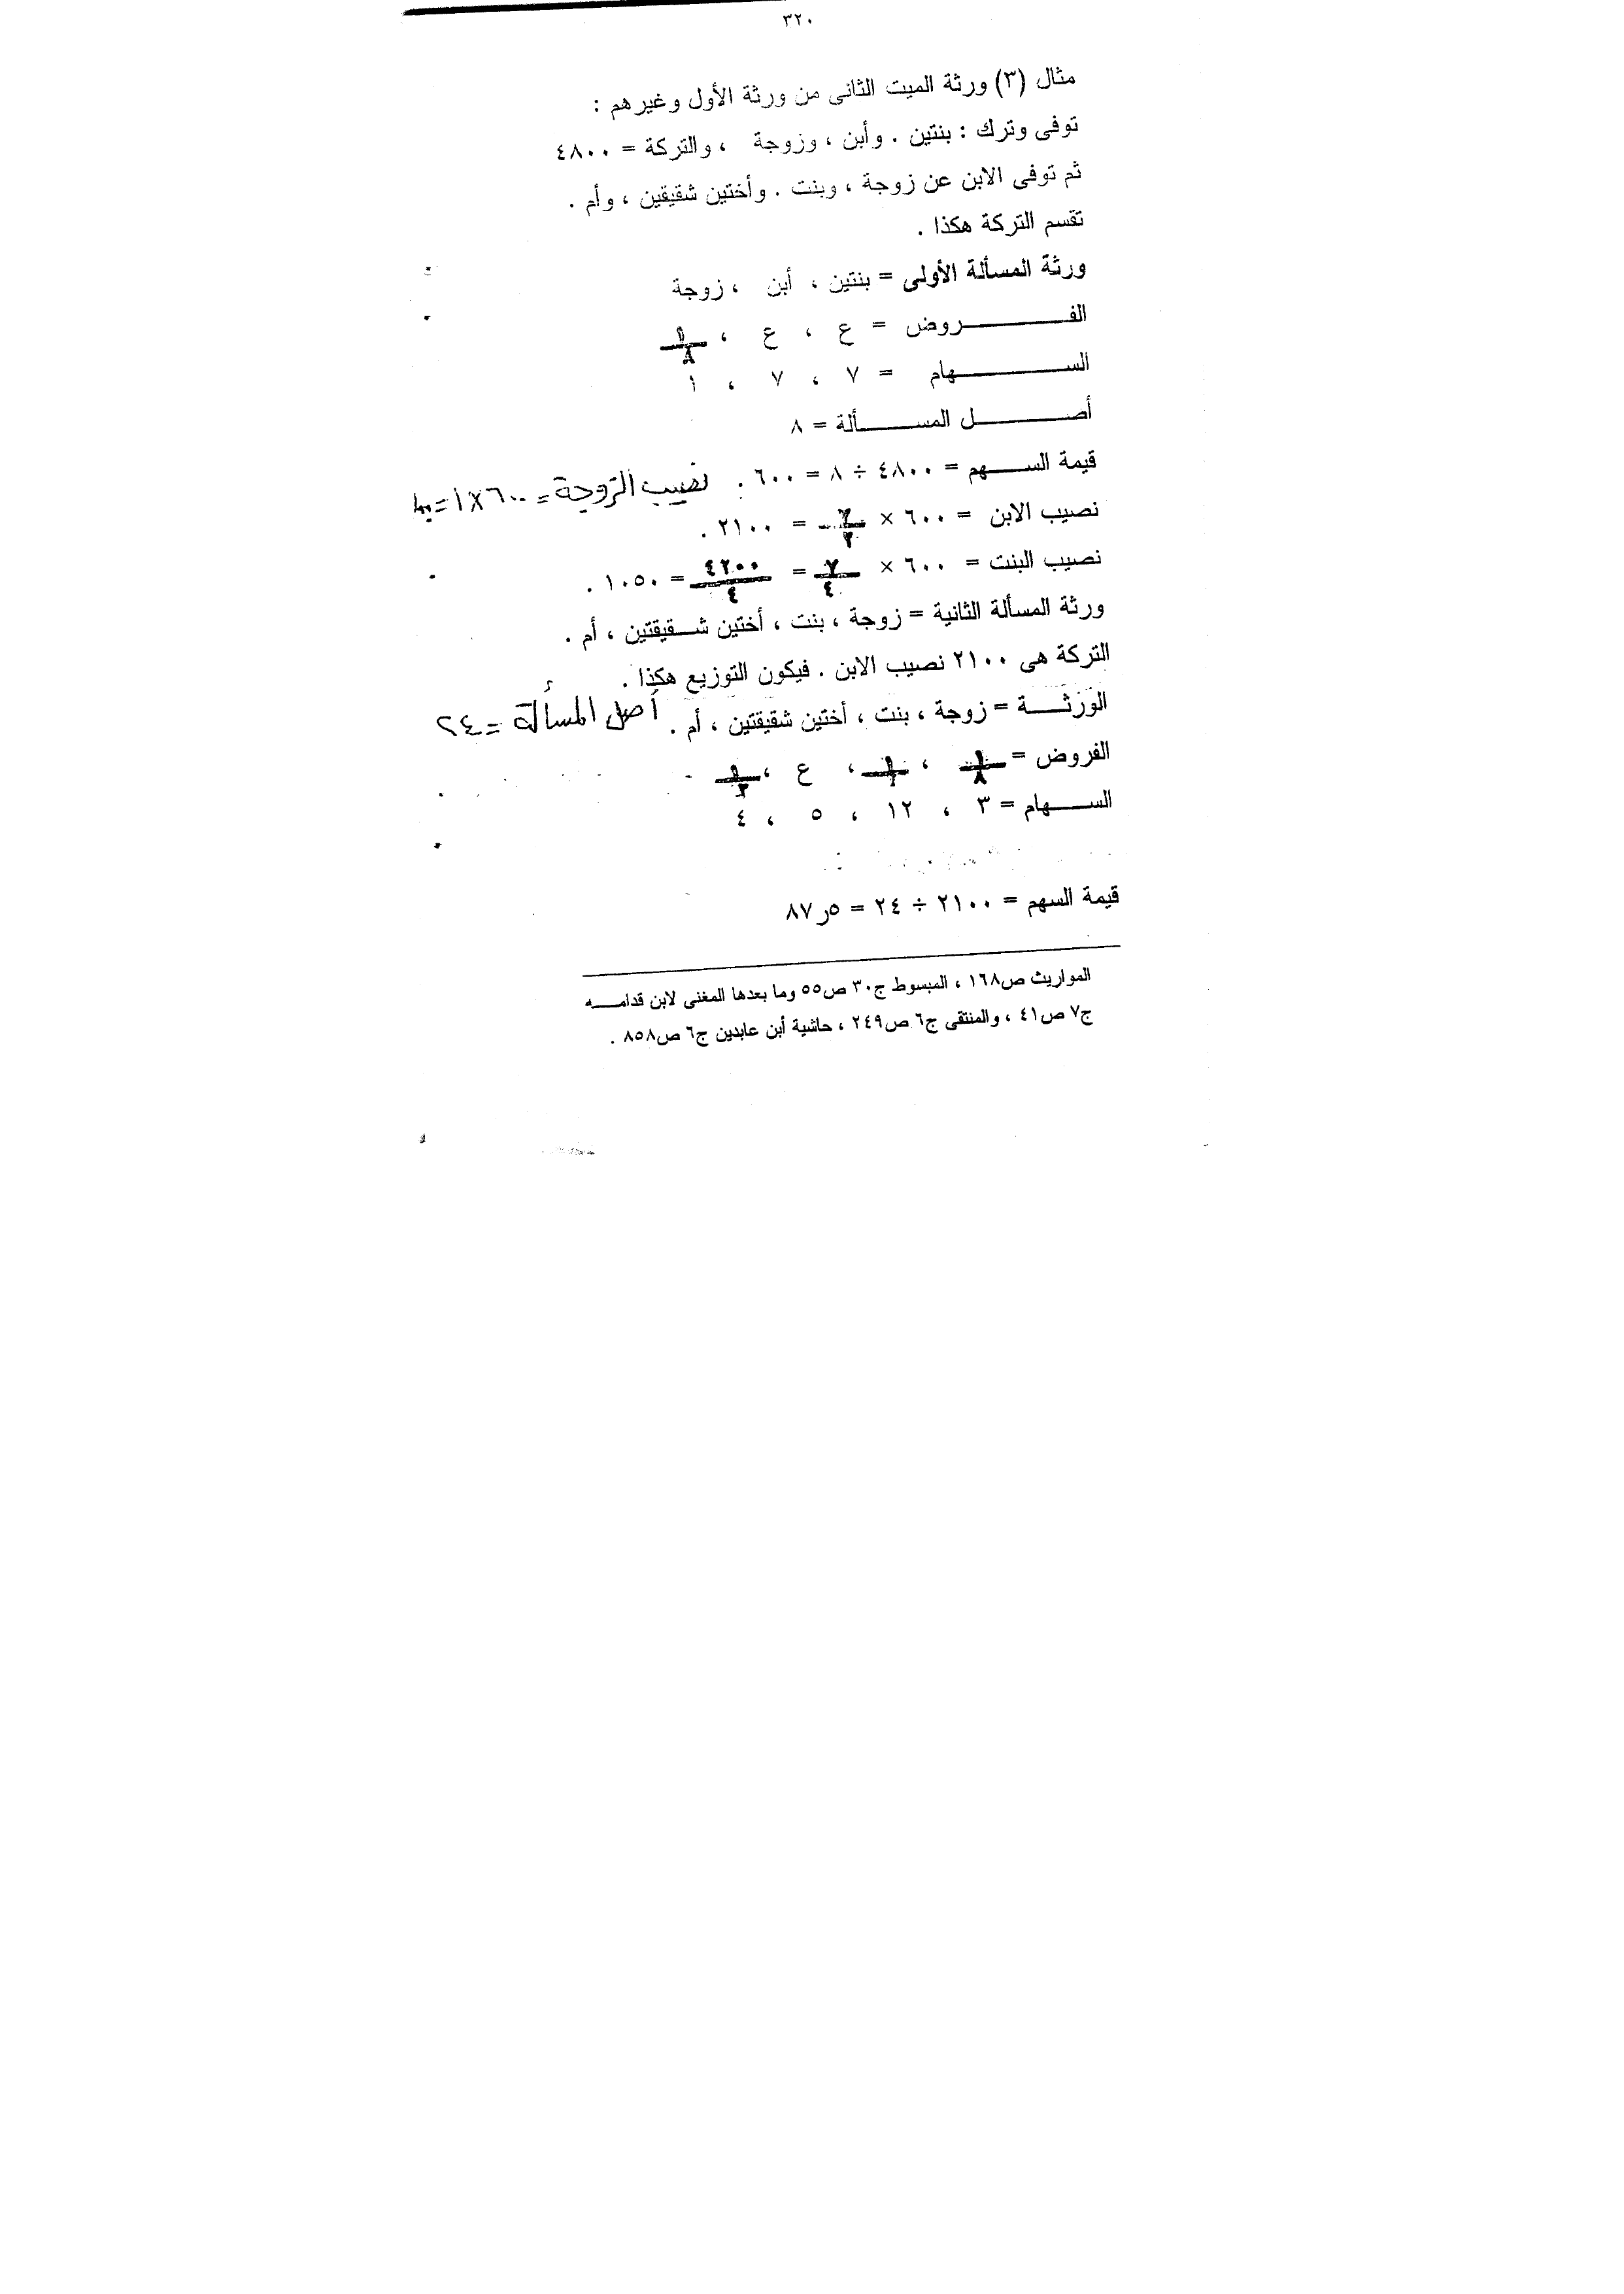 ٣٢٠
مثال (٣) ورثة الميت الثانى من ورثة الأول وغيرهم :
توفى وترك : بنتين . وأبن ، وزوجة ، والتركة = ٤٨٠٠
ثم توفى الابن عن زوجة ، وبنت . وأختين شقيقين ، وأم .
تقسم التركة هكذا .
ورثة المسألة الأولى = بنتين ، أبن ، زوجة
الفـــــروض = ع ، ع ، ١/٨
الســـــهام = ٧ ، ٧ ، ١
أصـــــل المســـــألة = ٨
قيمة الســـهم = ٤٨٠٠ ÷ ٨ = ٦٠٠ . نصيب الزوجة = ٦٠٠ × ١ =
نصيب الابن = ٦٠٠ × ٧/٢ = ٢١٠٠ .
نصيب البنت = ٦٠٠ × ٧/٤ = ٤٢٠٠/٤ = ١٠٥٠ .
ورثة المسألة الثانية = زوجة ، بنت ، أختين شـــقيقتين ، أم .
التركة هى ٢١٠٠ نصيب الابن . فيكون التوزيع هكذا .
الورثـــة = زوجة ، بنت ، أختين شقيقتين ، أم . أصل المسألة = ٢٤
الفروض = ١/٨ ، ، ع ،
الســـهام = ٣ ، ١٢ ، ٥ ، ٤
قيمة السهم = ٢١٠٠ ÷ ٢٤ = ٥ر٨٧
المواريث ص١٦٨ ، المبسوط ج٣٠ ص٥٥ وما بعدها المغنى لابن قدامـــه
ج٧ ص٤١ ، والمنتقى ج٦ ص٢٤٩ ، حاشية أبن عابدين ج٦ ص٨٥٨ .